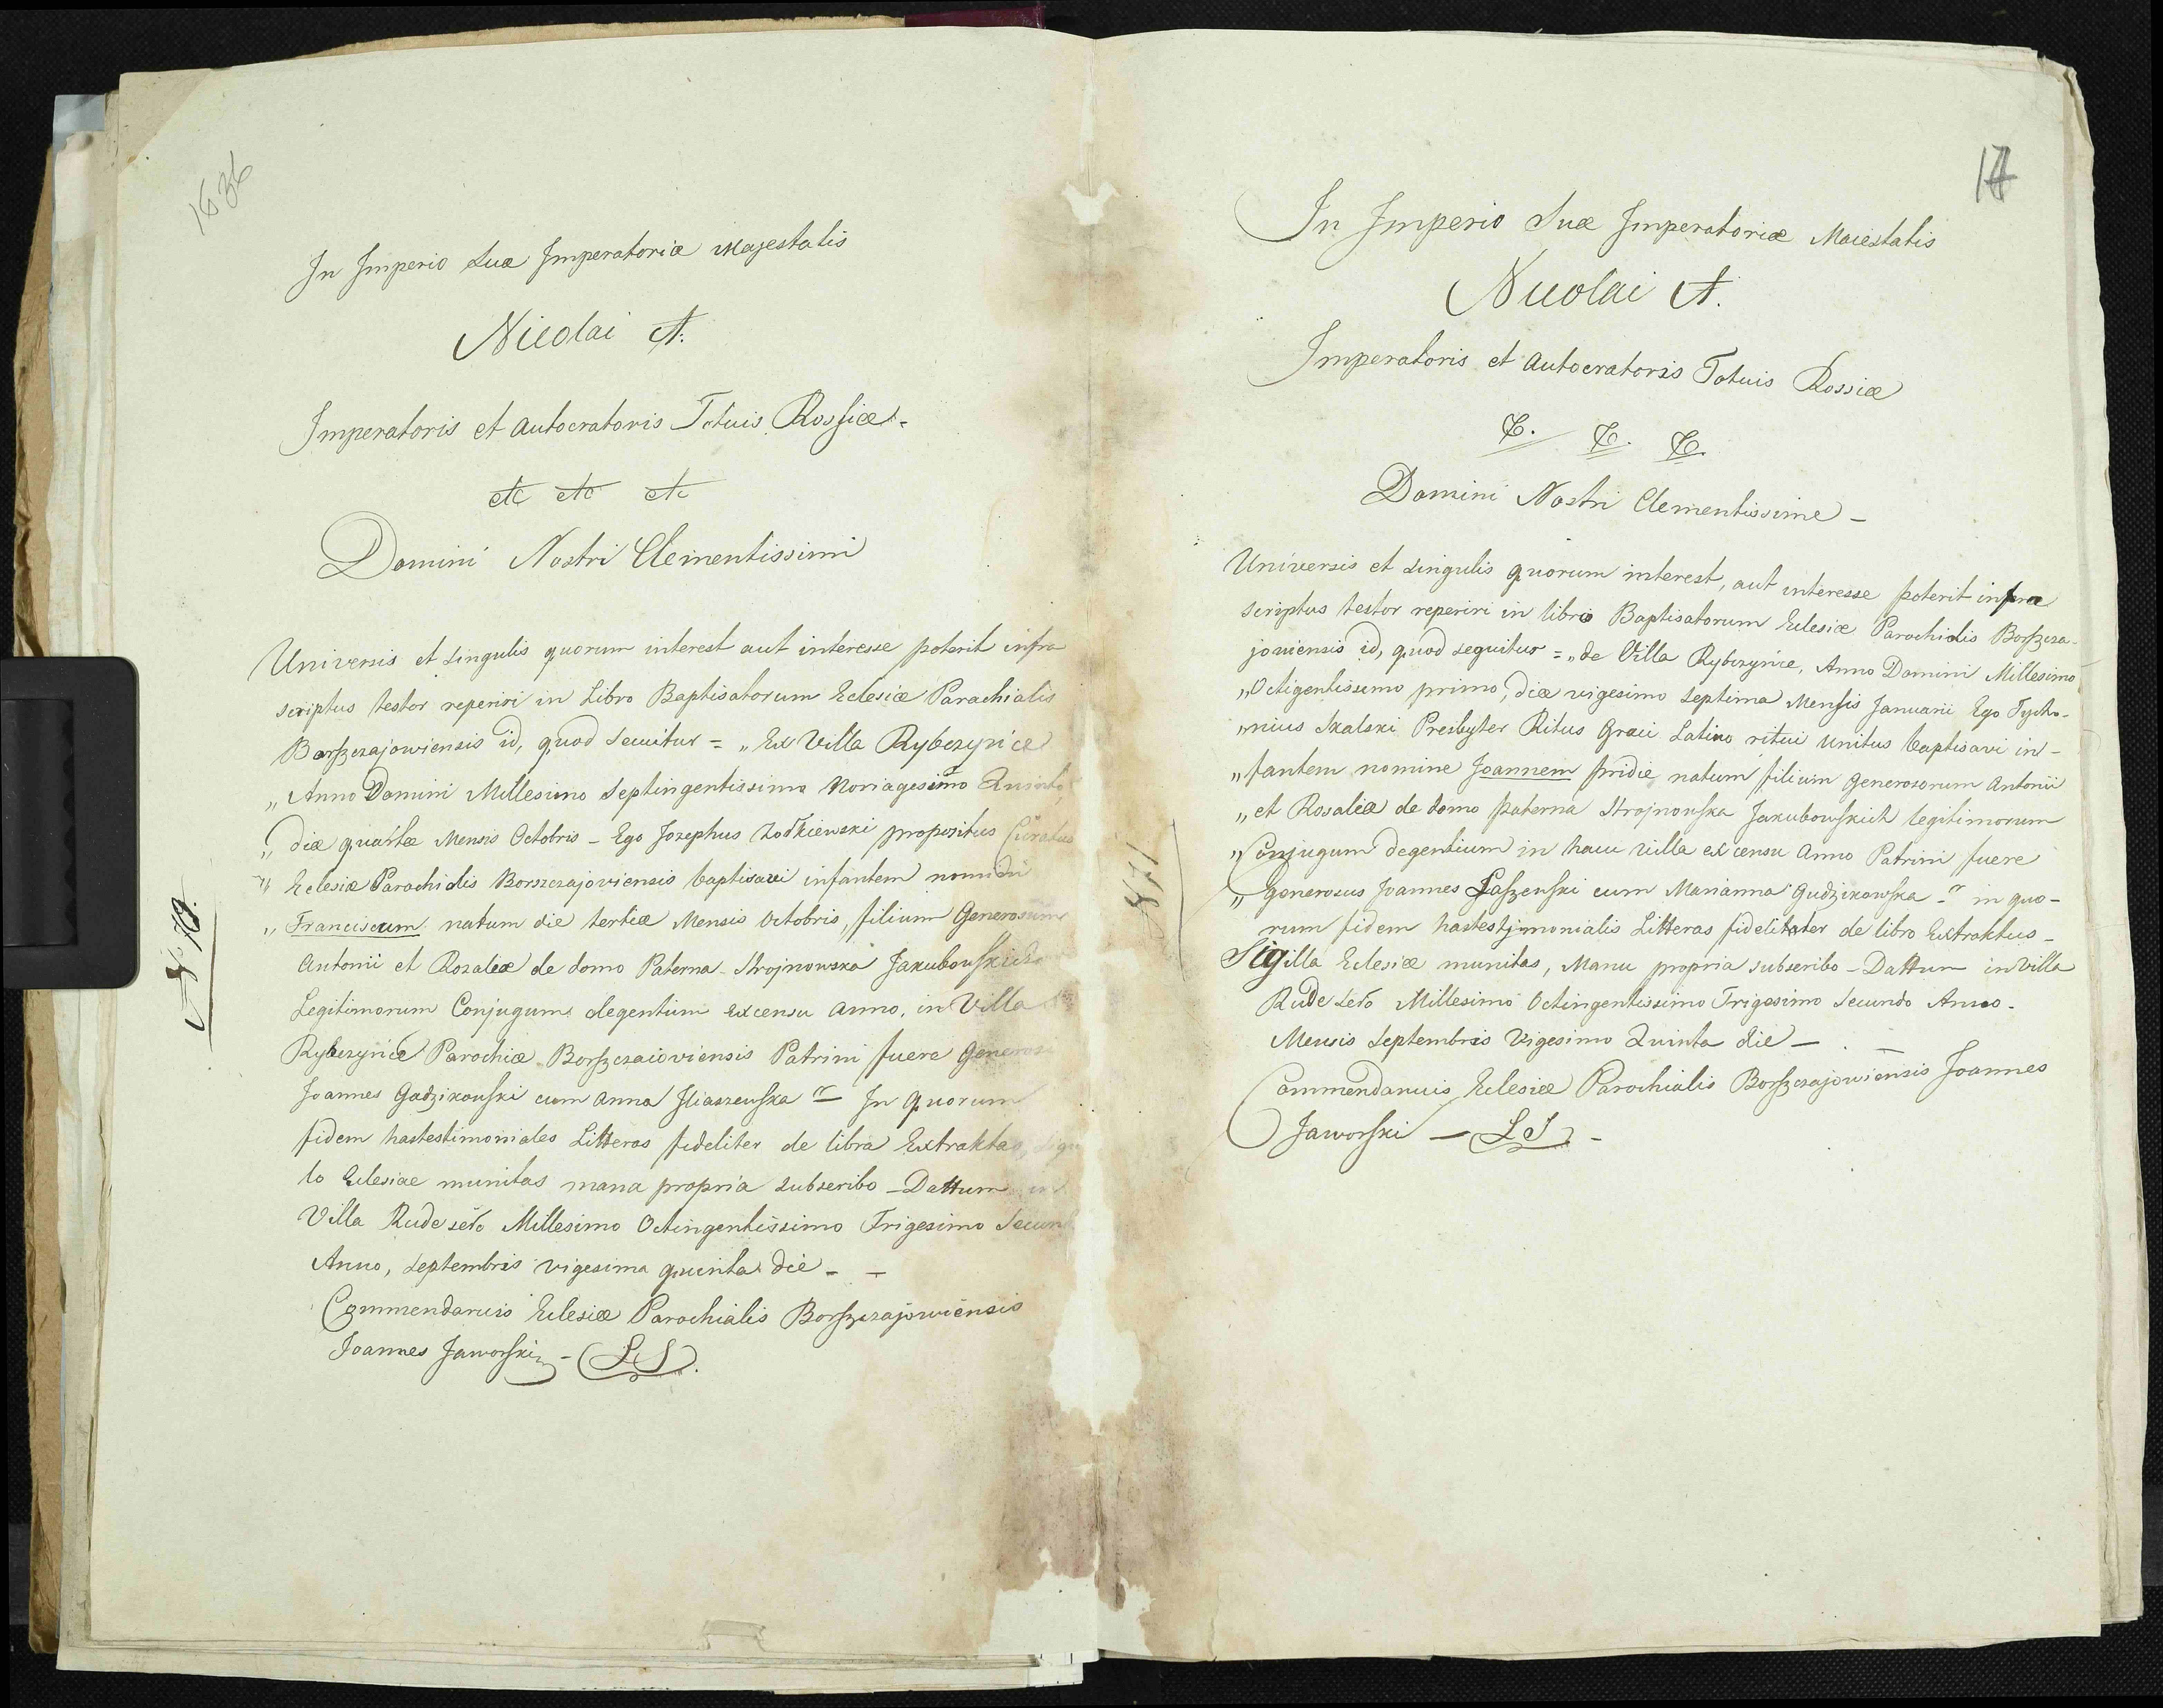 1636
In Imperio Suæ Imperatoriæ Majestatis
Nicolai I.
Imperatoris et Autocratoris Totuis Rossiæ -
etc etc etc
Domini Nostri Clementissimi
Universis et Singulis quorum interest aut interesse poterit infra
scriptus testor reperiri in Libro Baptisatorum Eclesiæ Parachialis
Borszczajowiensis id, quod secuitur = „Ex Villa Rybczyńce
„Anno Domini Millesimo Septingentissimo Noniagesimo Quinto,
„diæ quartæ Mensis Octobris - Ego Josephus Zołkiewski propositus Curatus
„Eclesiæ Parochialis Borszczajoviensis baptisavi infantem
„Franciscum natum die tertiæ Mensis Octobris, filium Generosum
Antonii et Rozaleæ de domo Paterna Strojnowska Jakubowskich
Legitimorum Conjugum degentium ex censu anno, in Villa
Rybczyńce Parochiæ Borszczaioviensis Patrini fuere Generosi
Joannes Gadzikowski cum Anna Iliaszewska “ In quorum
fidem hastestimoniales Litteras fideliter de libra Extraktas, Sigil
lo Eclesiae munitas mana propria subscribo - Dattum in
Villa Rude seło Millesimo Octingentissimo Trigesimo Secundo
Anno, Septembris vigesima quinta die - -
Commendaruis Eclesiæ Parochialis Borszczajowiensis
Joannes Jaworski - (LS).
№ 70.
17
In Imperio Suæ Imperatoriæ Maiestatis
Nicolai I.
Imperatoris et Autocratoris Totuis Rossiæ
&. &. &.
Domini Nostri Clementissime -
Universis et Singulis quorum interest, aut interesse poterit infra
scriptus testor reperiri in libro Baptisatorum Eclesiæ Parochialis Borszcza-
joviensis id, quod sequitur = „de Villa Rybczyńce, Anno Domini Millesimo
„Octigentissimo primo, diæ vigesimo Septima Mensis Januarii Ego Tycho-
„nius Skalski Presbyter Ritus Graci Latino ritui Unitus baptisavi in-
„fantem nomine Joannem pridie natum filium Generosorum Antonii
„et Rosaleæ de domo paterna Strojnowska Jakubowskich legitimorum
„Conjugum degentium in hacce villa ex censu Anno Patrini fuere
„Generosus Joannes Laszewski cum Marianna Gudzikowska -“ in quo-
rum fidem hastestimonialis Litteras fidelitater de libro Extraktus -
Sigilla Eclesiæ munitas, Manu propria subscribo - Dattum in Villa
Rude Seło Millesimo Octingentissimo Trigesimo Secundo Anno -
Mensis Septembris Vigesimo Quinta die -
Commendaruis Eclesiæ Parochialis Borszczajowiensis Joannes
Jaworski - (LS) -
871